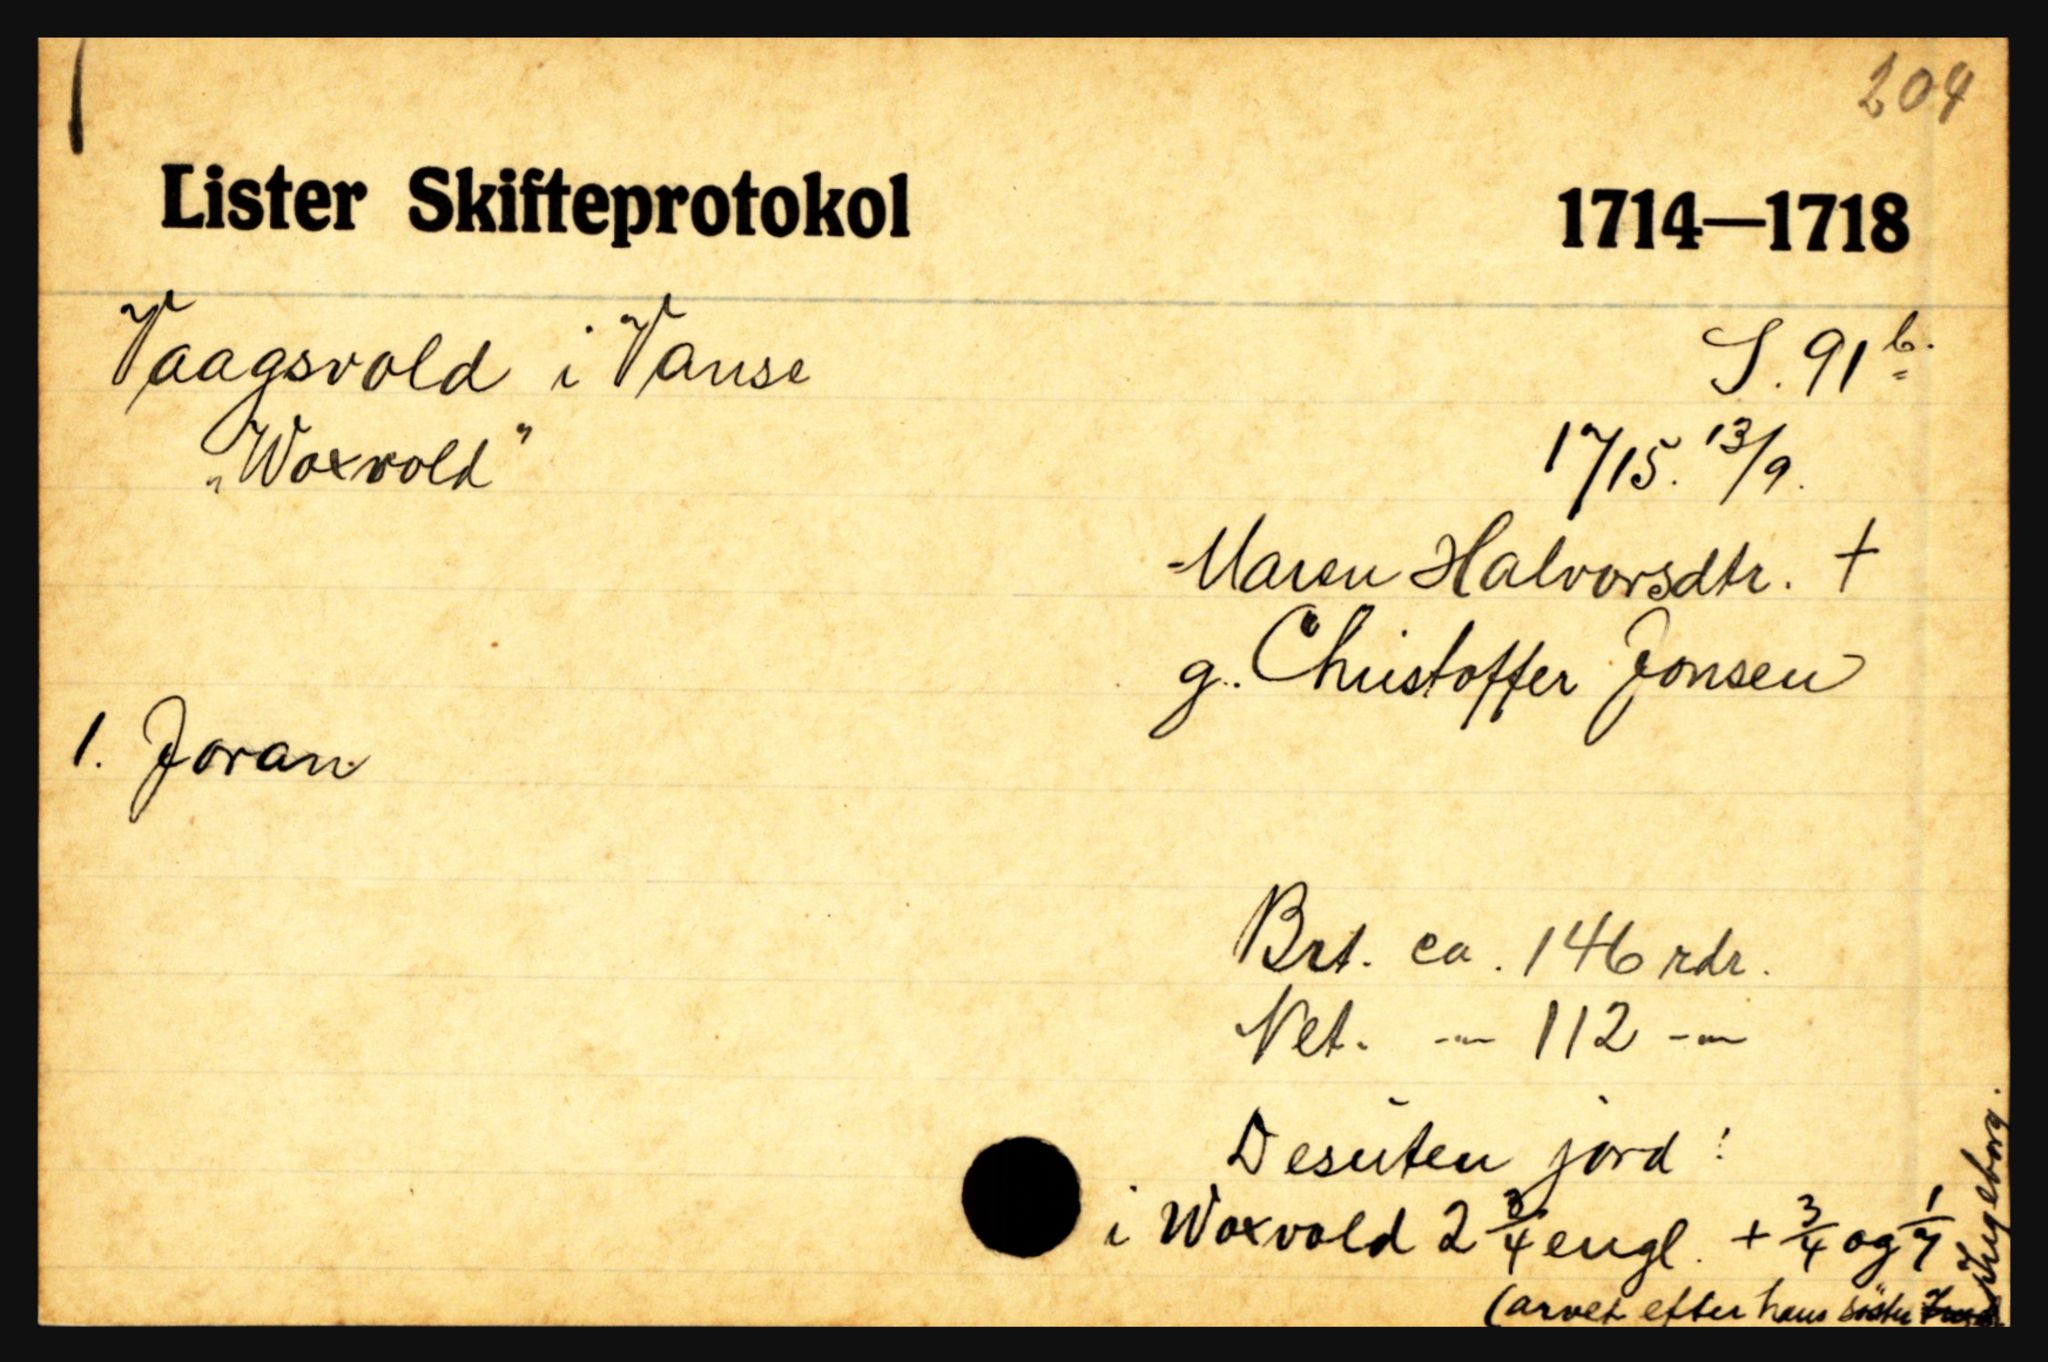 204
Lister Skifteprotokol 1714—1718
Vaagsvold i Vanse S. 91 b.
"Woxvold" 1715. 13/9.
Maren Halvorsdtr. +
g. Christoffer Jonsen
1. Joran
Brt. ca. 146 rdr.
Net. -„- 112 -„-
Desuten jord:
i Woxvold 2 3/4 engl. + 3/4 og 1/7
(arvet efter hans söster
Ingeborg.